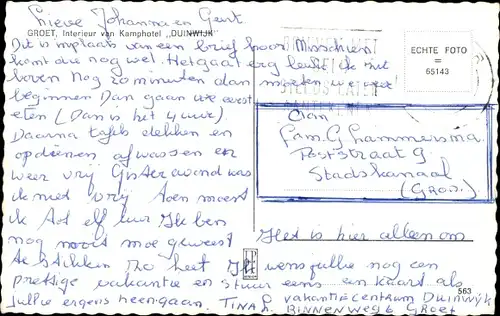 Lieve Johanna en Geert
GROET, Interieur van Kamphotel „DUINWIJK"
Dit is inplaats van een brief hoor. Misschien
komt die nog wel. Het gaat erg leuk. Ik zit
boven Nog 20 minuten dan moeten we weer
beginnen Dan gaan we eerst
eten (Dan is het 4 uur).
Daarna tafels dekken en
opdienen, afwassen en
weer vrij Gisteravond was
ik niet vrij Toen moest
ik tot elf uur Ik ben
nog nooit moe geweest
te stikken zo heet
Het is hier alleen om
Ik wens jullie nog een
prettige vakantie en stuur eens een kaart als
jullie ergens heengaan. TINA L. vakantiecentrum Duinwijk
BINNENWEG 6 GRoet
ECHTE FOTO
=
55143
Aan
Fam. G Lammersma
Poststraat 9
Stadskanaal
(GRON.)
563